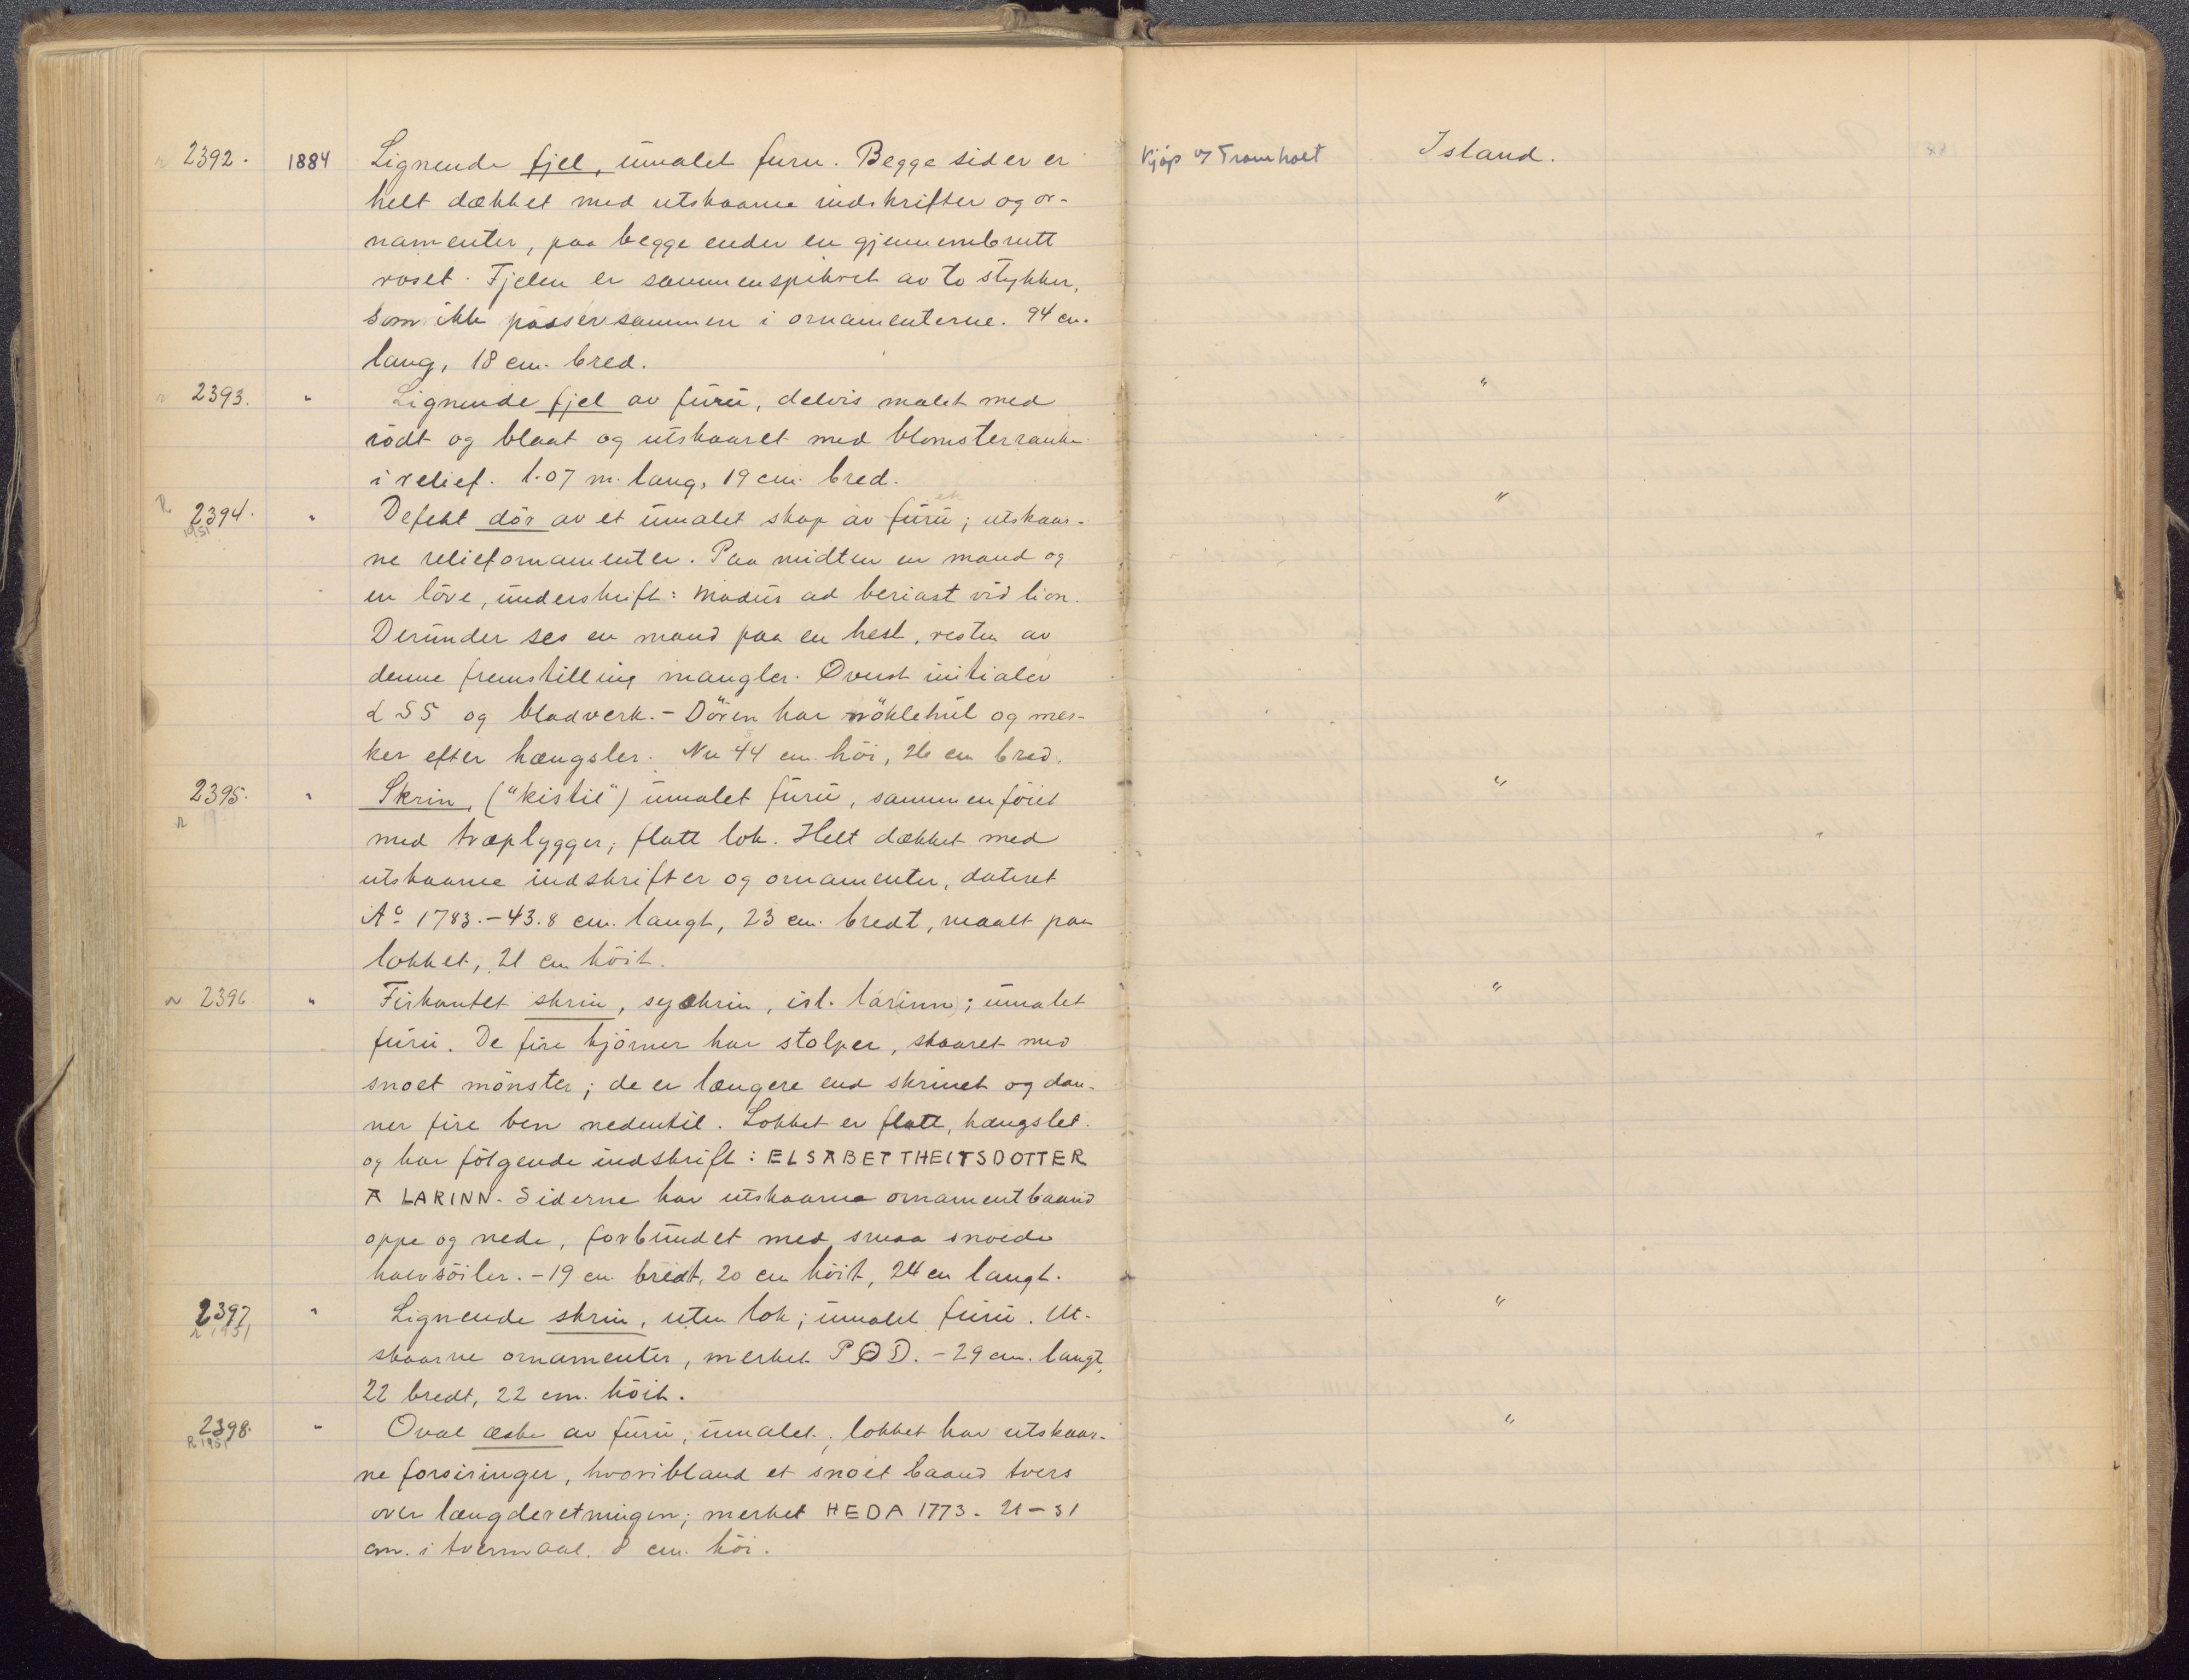 r 2392. 1884 Lignende fjel, ümalet furu. Begge sider er Kjöp av Tramholt Island. xx
helt dækket med utskaarne indskrifter og or-
namenter, paa begge ender en gjennembrutt
roset. Fjelen er sammenspikret av to stykker,
som ikke passer sammen i ornamenterne. 94 cm.
lang, 18 cm. bred.
r 2393. " Lignende fjel av furü, delvis malet med "
rödt og blaat og utskaaret med blomsterranke
i relief. 1.07 m. lang, 19 cm. bred.
R 2394. " Defekt dör av et ümalet skap av fürü; utskaar- "
1951
ne reliefornamenter. Paa midten en mand og
en löve, ünderskrift: Madür ad beriast vid lion.
Deründer ses en mand paa en hest, resten av
denne fremstilling mangler. Øverst initialer
L S S og bladverk. - Dören har nöklehül og mer-
ker efter hængsler. Nu 44 cm. höi, 26 cm bred.
2395. " Skrin, ("kistil") ümalet fürü, sammenföiet "
r 19
med træplygger, flatt lok. Helt dækket med
utskaarne indskrifter og ornamenter, dateret
Aº 1783. - 43.8 cm. langt, 23 cm. bredt, maalt paa
lokket, 21 cm höit.
r 2396 " Firkantet skrin, syskrin, isl. lár(inn); ümalet "
fürü. De fire hjörner har stolper, skaaret med
snoet mönster; de er længere end skrinet og dan-
ner fire ben nedentil. Lokket er flatt, hængslet
og har fölgende indskrift: ELSABET THEITSDOTTER
A LARINN. Siderne har utskaarne ornamentbaand
oppe og nede, forbündet med smaa snoede
halvsöiler. - 19 cm. bredt, 20 cm höit, 24 cm langt.
2397 " Lignende skrin, uten lok; ümalet fürü. Ut- "
r 1951
skaarne ornamenter, merket P Ø D. - 29 cm. langt,
22 bredt, 22 cm. höit.
2398. " Oval æske av fürü, ümalet; lokket har utskaar- "
R 1951
ne forsiringer, hvoribland et snoet baand tvers
over længderetningen; merket HEDA 1773. 21 - 31
cm. i tvermaal. 8 cm. höi.